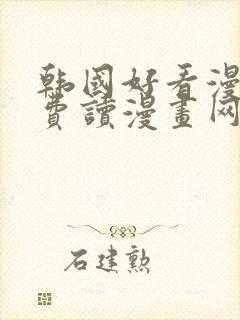 韩國好看漫
費讀漫畫网
石建勲